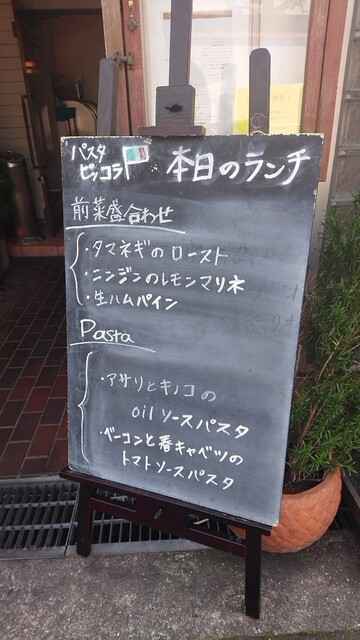 パスタ
ピッコラ
本日のランチ
前菜盛合わせ
・タマネギのロースト
・ニンジンのレモンマリネ
・生ハムパイン
Pasta
・アサリとキノコの
oilソースパスタ
・ベーコンと春キャベツの
トマトソースパスタ